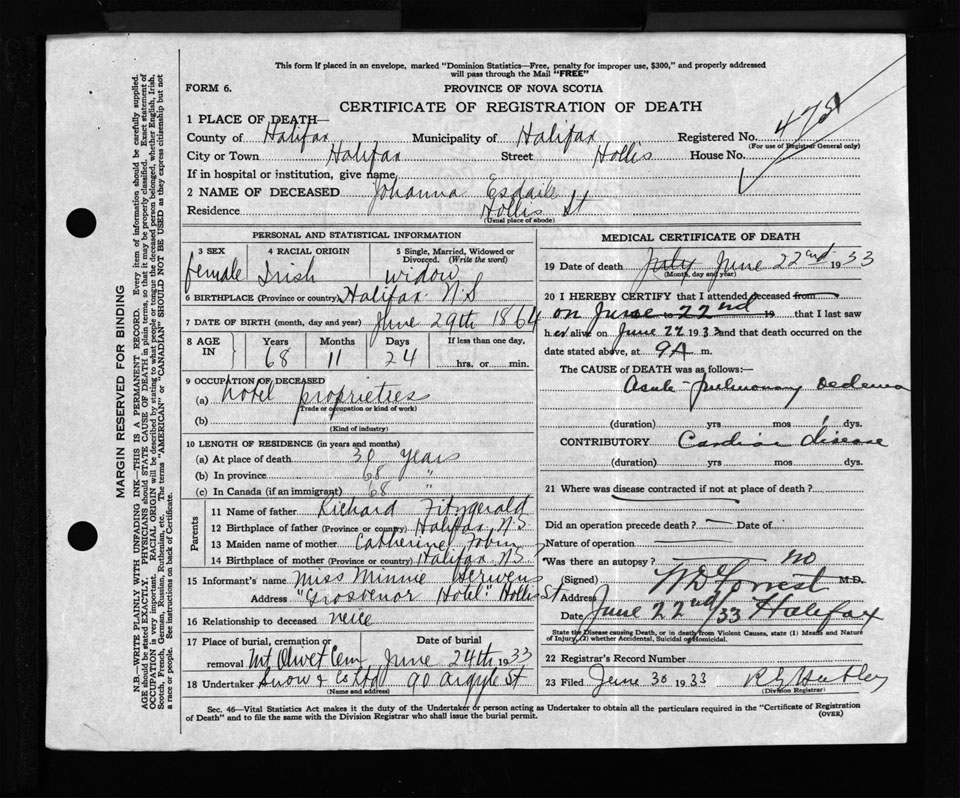 This form if placed in an envelope, marked "Dominion Statistics—Free, penalty for improper use, $300," and properly addressed
will pass through the Mail "FREE"
FORM 6.
PROVINCE OF NOVA SCOTIA
CERTIFICATE OF REGISTRATION OF DEATH
1 PLACE OF DEATH—
County of Halifax Municipality of Halifax Registered No.
(For use of Registrar General only)
City or Town Halifax Street Hollis House No.
If in hospital or institution, give name
2 NAME OF DECEASED Johanna Esdaile
Residence Hollis St
(Usual place of abode)
PERSONAL AND STATISTICAL INFORMATION
3 SEX 4 RACIAL ORIGIN 5 Single, Married, Widowed or Divorced. (Write the word)
female Irish widow
6 BIRTHPLACE (Province or country) Halifax N.S
7 DATE OF BIRTH (month, day and year) June 29th 1864
8 AGE IN Years Months Days If less than one day,
68 11 24 hrs. or min.
9 OCCUPATION OF DECEASED
(a) hotel proprietress
(Trade or occupation or kind of work)
(b)
(Kind of industry)
10 LENGTH OF RESIDENCE (in years and months)
(a) At place of death 30 years
(b) In province 68 "
(c) In Canada (if an immigrant) 68 "
Parents
11 Name of father Richard Fitzgerald
12 Birthplace of father (Province or country) Halifax, N.S
13 Maiden name of mother Catherine Tobin
14 Birthplace of mother (Province or country) Halifax N.S
15 Informant's name Miss Minnie
Address "Grosvenor Hotel" Hollis St
16 Relationship to deceased neice
17 Place of burial, cremation or removal Mt Olivet Cem Date of burial June 24th 1933
18 Undertaker Snow & Co Ltd 90 Argyle St
(Name and address)
MEDICAL CERTIFICATE OF DEATH
19 Date of death July June 22nd 1933
(Month, day and year)
20 I HEREBY CERTIFY that I attended deceased from
on June 22nd 19 that I last saw
h er alive on June 22 1933 and that death occurred on the
date stated above, at 9 A m.
The CAUSE OF DEATH was as follows:—
Acute pulmonary oedema
(duration) yrs mos. 1 dys.
CONTRIBUTORY Cardiac disease
(duration) yrs mos. dys.
21 Where was disease contracted if not at place of death?
Did an operation precede death? — Date of
Nature of operation
Was there an autopsy? no
(Signed) W D Forrest M.D.
Address
Date June 22nd/33 Halifax
State the Disease causing Death, or in death from Violent Causes, state (1) Means and Nature
of Injury, (2) whether Accidental, Suicidal or Homicidal.
22 Registrar's Record Number
23 Filed June 30 1933
(Division Registrar)
Sec. 46—Vital Statistics Act makes it the duty of the Undertaker or person acting as Undertaker to obtain all the particulars required in the "Certificate of Registration
of Death" and to file the same with the Division Registrar who shall issue the burial permit.
(OVER)
MARGIN RESERVED FOR BINDING
N.B.—WRITE PLAINLY WITH UNFADING INK—THIS IS A PERMANENT RECORD. Every item of information should be carefully supplied.
AGE should be stated EXACTLY. PHYSICIANS should STATE CAUSE OF DEATH in plain terms, so that it may be properly classified. Exact statement of
OCCUPATION is very important. RACIAL ORIGIN will be described by stating to what people or tongue the deceased person belonged, whether English, Irish,
Scotch, French, German, Russian, Ruthenian, etc. The terms "AMERICAN" or "CANADIAN" SHOULD NOT BE USED as they express citizenship but not
a race or people. See instructions on back of Certificate.